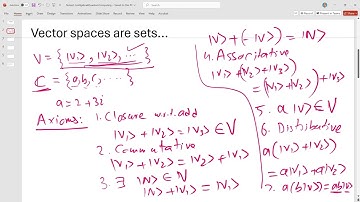 Vector spaces are sets...
V = { |V₁>, |V₂>, ... }
C = { a, b, c, ... }
a = 2 + 3i
Axioms: 1. Closure w.r.t. add
|V₁> + |V₂> = |V₃> ∈ V
2. Commutative
|V₁> + |V₂> = |V₂> + |V₁>
3. ∃ |N> ∈ V
|N> + |V₁> = |V₁>
|V> + (-|V>) = |N>
4. Associative
|V₁> + (|V₂> + |V₃>)
= (|V₁> + |V₂>) + |V₃>
5. a |V> ∈ V
6. Distributive
a(|V₁> + |V₂>)
= a|V₁> + a|V₂>
7. a(b|V>) = ab|V>